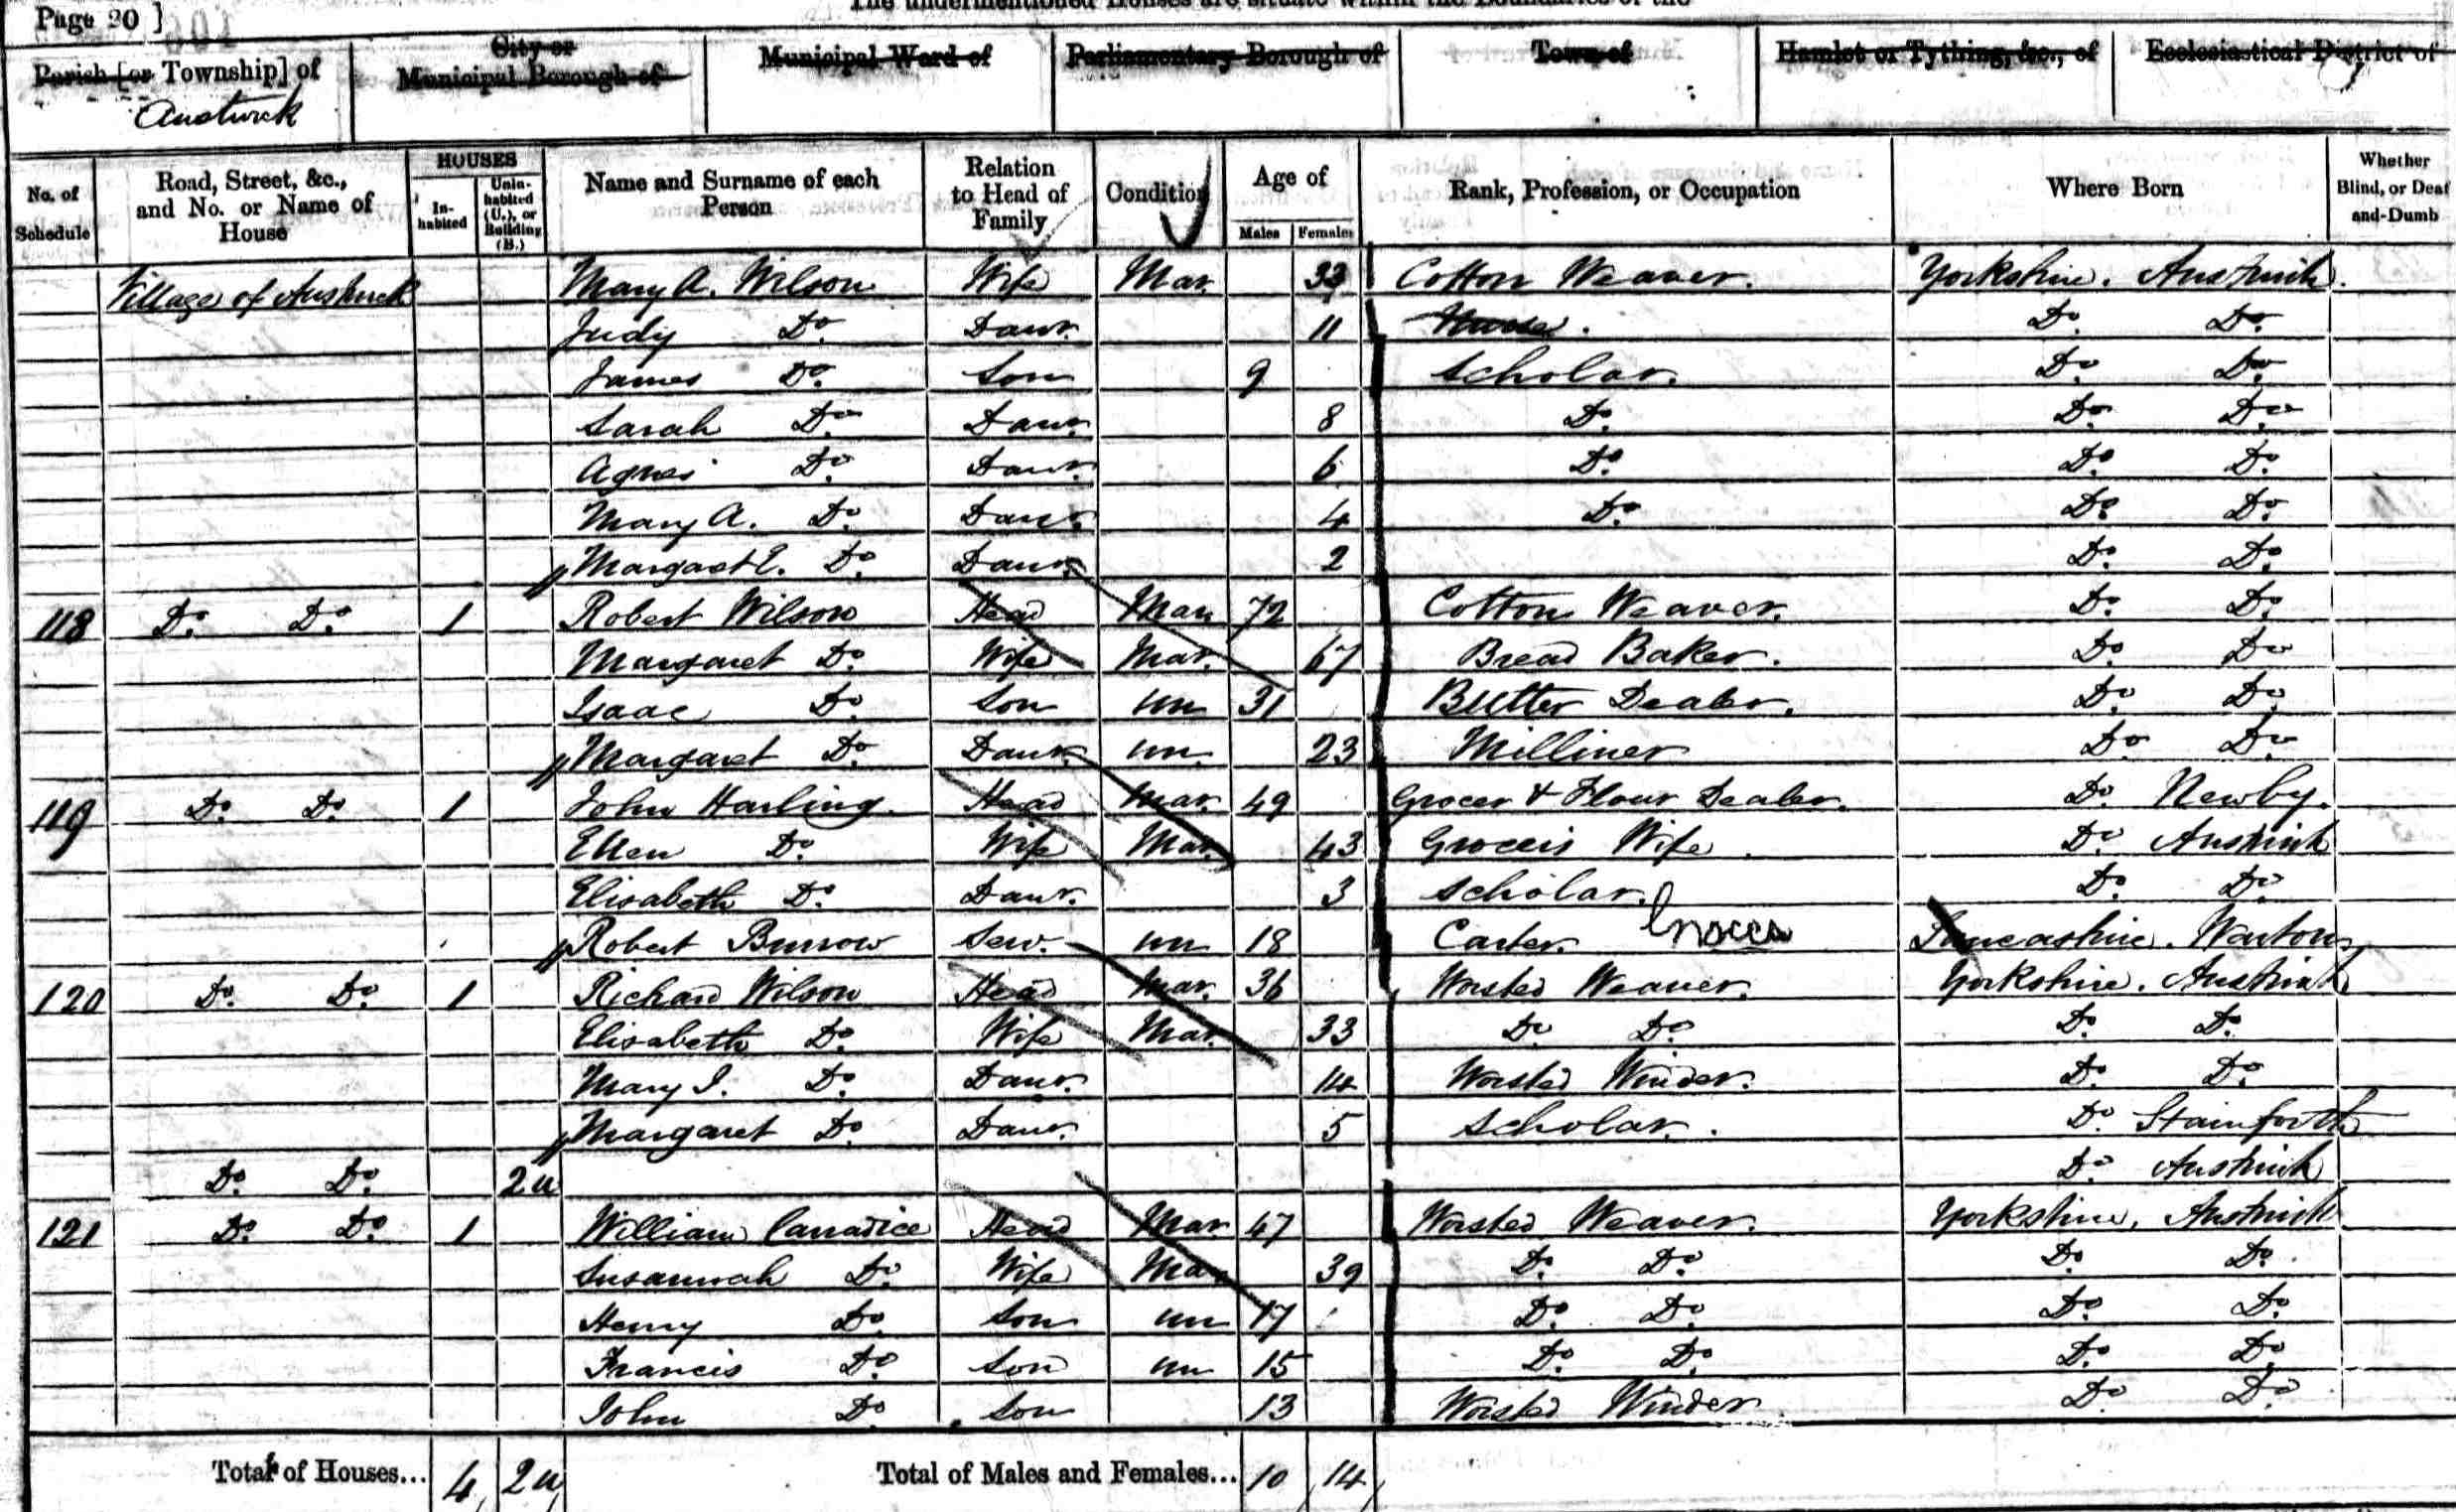 Page 20 ]
The undermentioned Houses are situate within the Boundaries of the
Parish [or Township] of
City or Municipal Borough of
Municipal Ward of
Parliamentary Borough of
Town of
Hamlet or Tything, &c., of
Ecclesiastical District of
Austwick
No. of Schedule
Road, Street, &c., and No. or Name of House
HOUSES
In-habited
Unin-habited (U.), or Building (B.)
Name and Surname of each Person
Relation to Head of Family
Condition
Age of
Males
Females
Rank, Profession, or Occupation
Where Born
Whether Blind, or Deaf and-Dumb
Village of Austwick Mary A. Wilson Wife Mar. 33 Cotton Weaver. Yorkshire. Austwick.
Judy Do. Daur. 11 Do. Do.
James Do. Son 9 Scholar. Do. Do.
Sarah Do. Daur. 8 Do. Do. Do.
Agnes Do. Daur. 6 Do. Do. Do.
Mary A. Do. Daur. 4 Do. Do. Do.
Margaret E. Do. Daur. 2 Do. Do.
118 Do. Do. 1 Robert Wilson Head Mar 72 Cotton Weaver. Do. Do.
Margaret Do. Wife Mar. 67 Bread Baker. Do. Do
Isaac Do. Son un 31 Butter Dealer. Do. Do.
Margaret Do. Daur. un. 23 Milliner Do Do
119 Do. Do. 1 John Harling. Head Mar. 49 Grocer & Flour Dealer. Do. Newby.
Ellen Do. Wife Mar. 43 Grocers Wife. Do. Austwick
Elisabeth Do. Daur. 3 Scholar. Do. Do.
Robert Burrow Serv. un 18 Carter. Grocer Lancashire. Warton
120 Do. Do. 1 Richard Wilson Head Mar. 36 Worsted Weaver. Yorkshire. Austwick
Elisabeth Do. Wife Mar. 33 Do. Do. Do. Do.
Mary I. Do. Daur. 14 Worsted Winder. Do. Do.
Margaret Do. Daur. 5 Scholar. Do. Stainforth
Do. Do. 2u Do. Austwick
121 Do. Do. 1 William Carradice Head Mar 47 Worsted Weaver. Yorkshire. Austwick
Susannah Do. Wife Mar 39 Do. Do. Do. Do.
Henry Do. Son un 17 Do. Do. Do. Do.
Francis Do. Son un 15 Do. Do. Do. Do.
John Do. Son 13 Worsted Winder Do. Do.
Total of Houses... 4 2u Total of Males and Females... 10 14